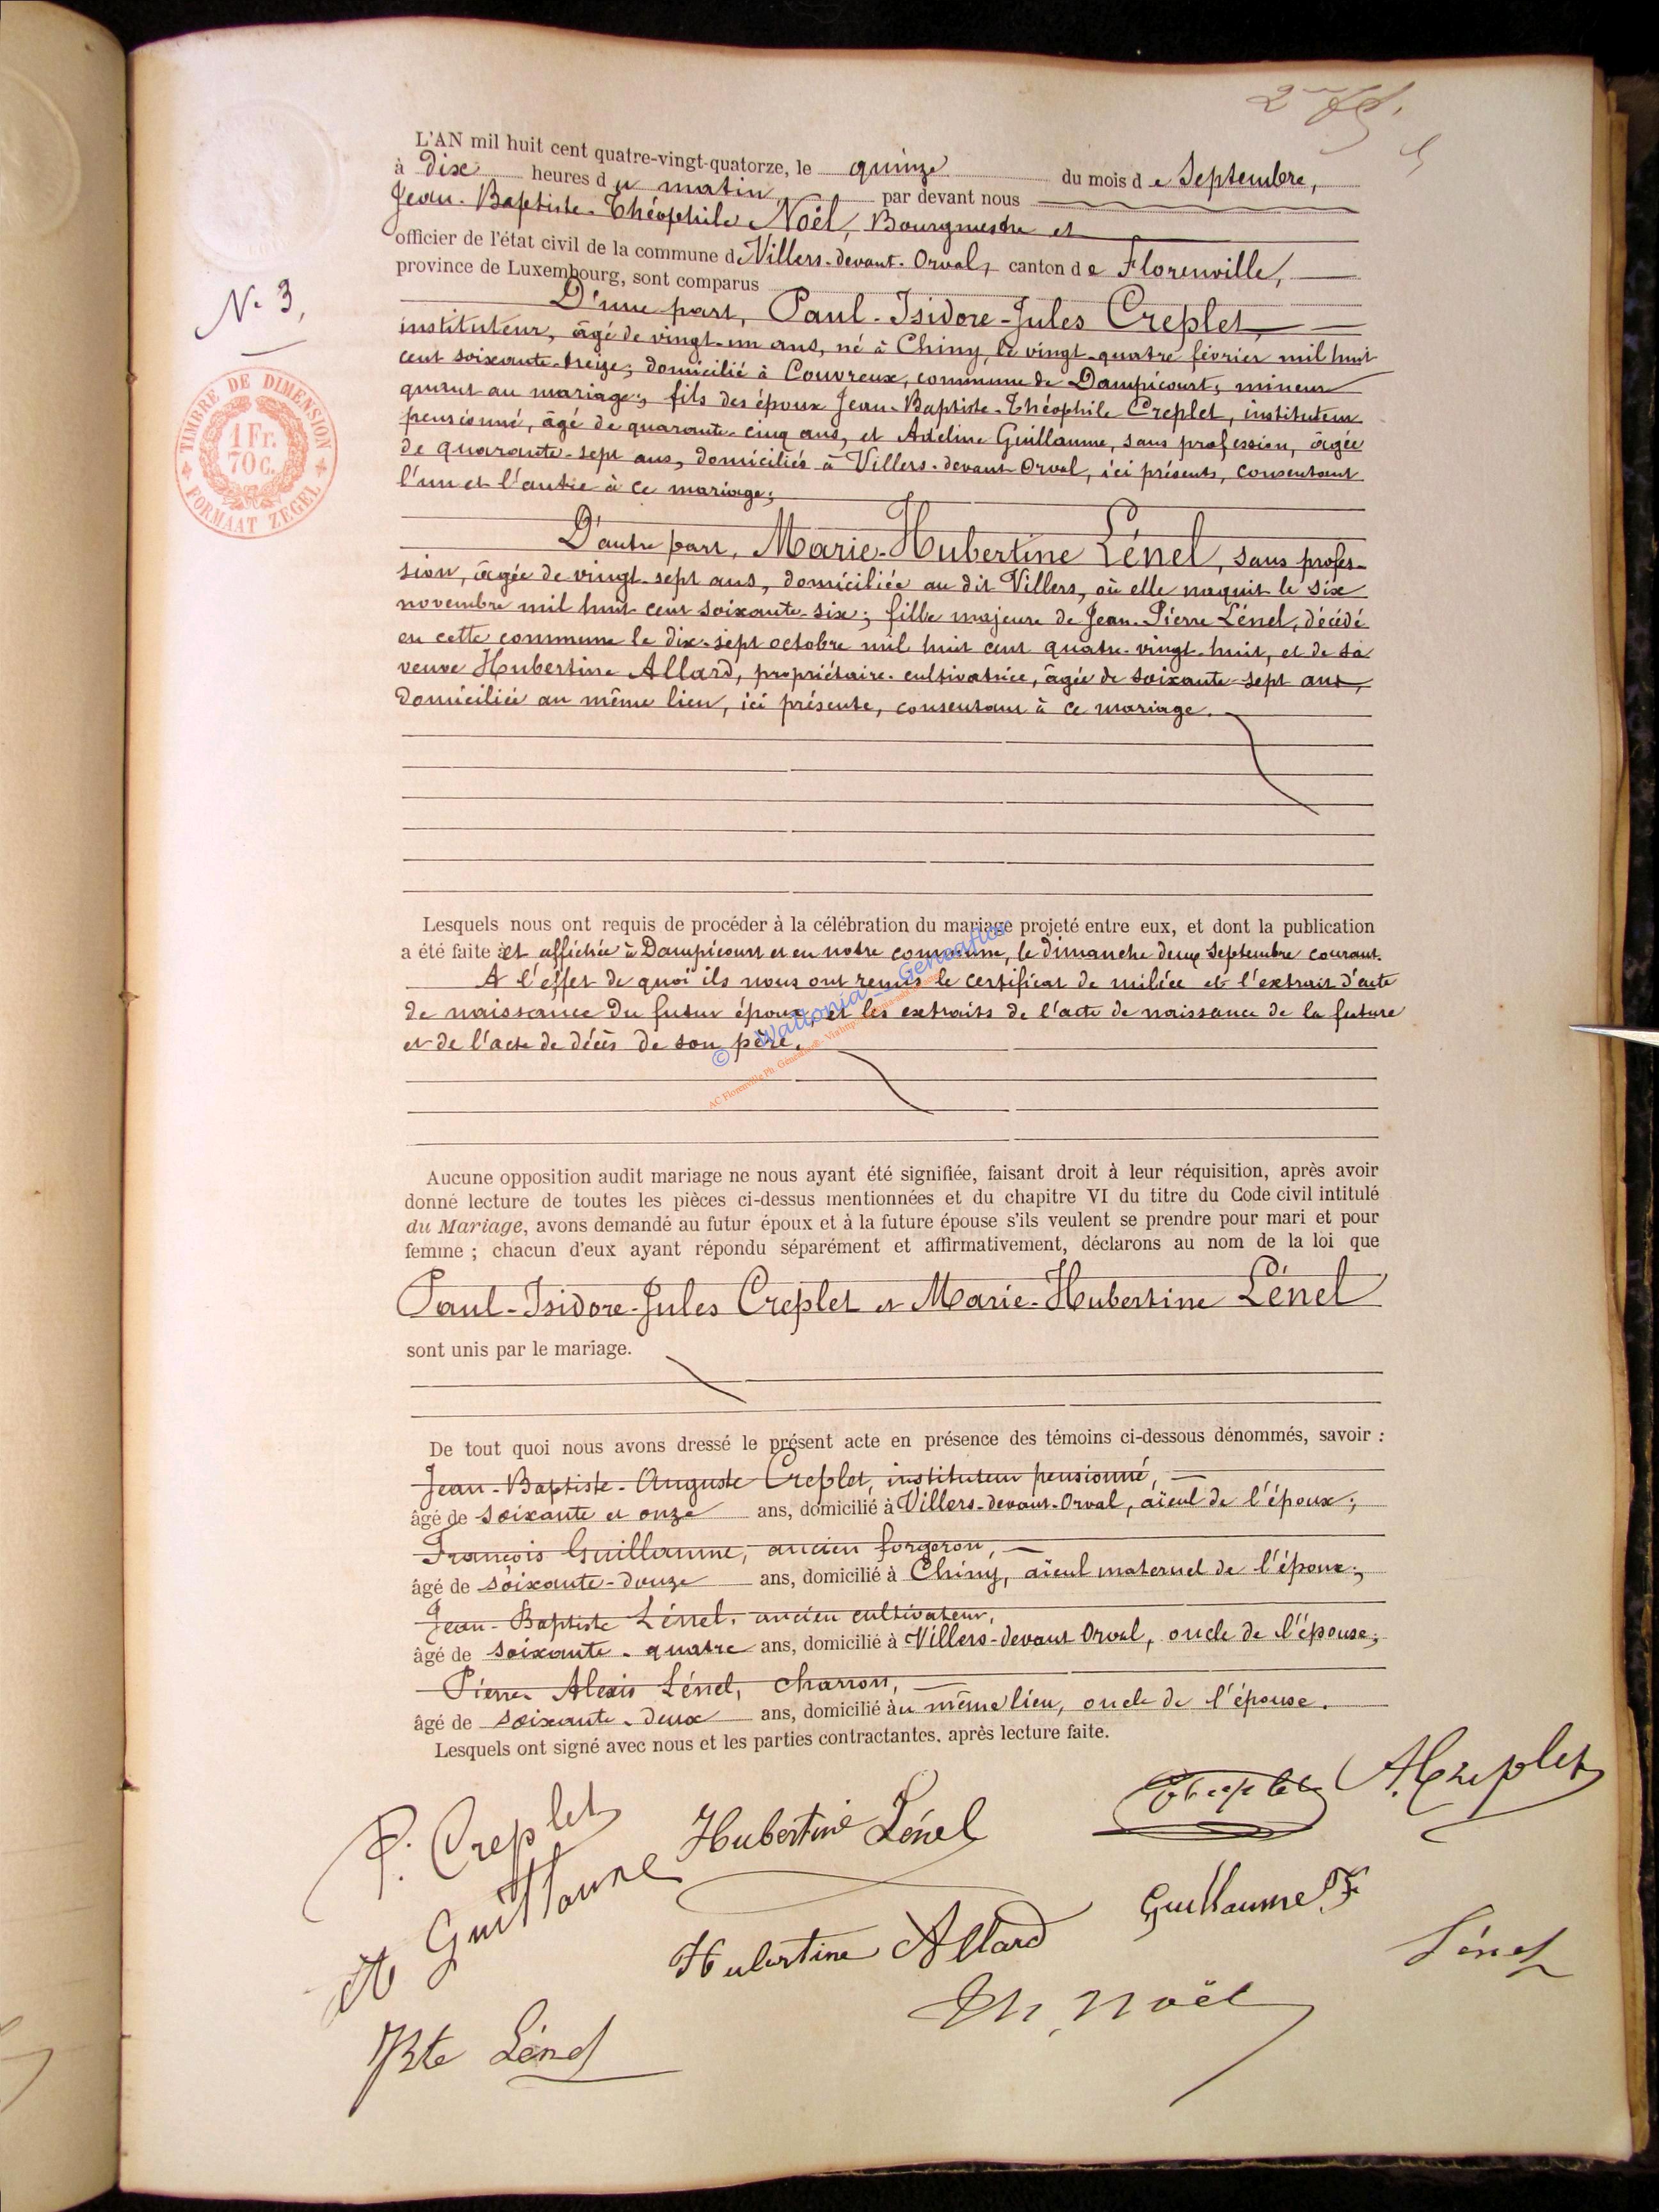 L'AN mil huit cent quatre-vingt-quatorze, le quinze du mois de Septembre,
à dix heures du matin, par devant nous
Jean-Baptiste-Théophile Noël, Bourgmestre et
officier de l'état civil de la commune de Villers-devant-Orval, canton de Florenville,
province de Luxembourg, sont comparus
N° 3,
D'une part, Paul-Isidore-Jules Creplet,
instituteur, âgé de vingt-un ans, né à Chiny, le vingt-quatre février mil huit
cent soixante-treize, domicilié à Couvreux, commune de Dampicourt, mineur
quant au mariage; fils des époux Jean-Baptiste-Théophile Creplet, instituteur
pensionné, âgé de quarante-cinq ans, et Adeline Guillaume, sans profession, âgée
de quarante-sept ans, domiciliés à Villers-devant-Orval, ici présents, consentant
l'un et l'autre à ce mariage;
TIMBRE DE DIMENSION
1 Fr.
70 C.
FORMAAT ZEGEL
D'autre part, Marie-Hubertine Lénel, sans profes-
sion, âgée de vingt-sept ans, domiciliée au dit Villers, où elle naquit le six
novembre mil huit cent soixante-six; fille majeure de Jean-Pierre Lénel, décédé
en cette commune le dix-sept octobre mil huit cent quatre-vingt-huit, et de sa
veuve Hubertine Allard, propriétaire-cultivatrice, âgée de soixante-sept ans,
domiciliée au même lieu, ici présente, consentant à ce mariage.
Lesquels nous ont requis de procéder à la célébration du mariage projeté entre eux, et dont la publication
a été faite et affichée à Dampicourt et en notre commune, le dimanche deux Septembre courant.
A l'effet de quoi ils nous ont remis le certificat de milice et l'extrait d'acte
de naissance du futur époux, et les extraits de l'acte de naissance de la future
et de l'acte de décès de son père.
© Wallonia - Geneaflor
AC Florenville Ph.
Aucune opposition audit mariage ne nous ayant été signifiée, faisant droit à leur réquisition, après avoir
donné lecture de toutes les pièces ci-dessus mentionnées et du chapitre VI du titre du Code civil intitulé
du Mariage, avons demandé au futur époux et à la future épouse s'ils veulent se prendre pour mari et pour
femme ; chacun d'eux ayant répondu séparément et affirmativement, déclarons au nom de la loi que
Paul-Isidore-Jules Creplet et Marie-Hubertine Lénel
sont unis par le mariage.
De tout quoi nous avons dressé le présent acte en présence des témoins ci-dessous dénommés, savoir :
Jean-Baptiste-Auguste Creplet, instituteur pensionné,
âgé de soixante et onze ans, domicilié à Villers-devant-Orval, aïeul de l'époux;
François Guillaume, ancien forgeron,
âgé de soixante-douze ans, domicilié à Chiny, aïeul maternel de l'époux;
Jean-Baptiste Lénel, ancien cultivateur,
âgé de soixante-quatre ans, domicilié à Villers-devant Orval, oncle de l'épouse;
Pierre-Alexis Lénel, charron,
âgé de soixante-deux ans, domicilié au même lieu, oncle de l'épouse.
Lesquels ont signé avec nous et les parties contractantes, après lecture faite.
P. Creplet
Hubertine Lénel
Creplet
A. Creplet
Guillaume
Hubertine Allard
Guillaume F
Lénel
JBte Lénel
Th. Noël